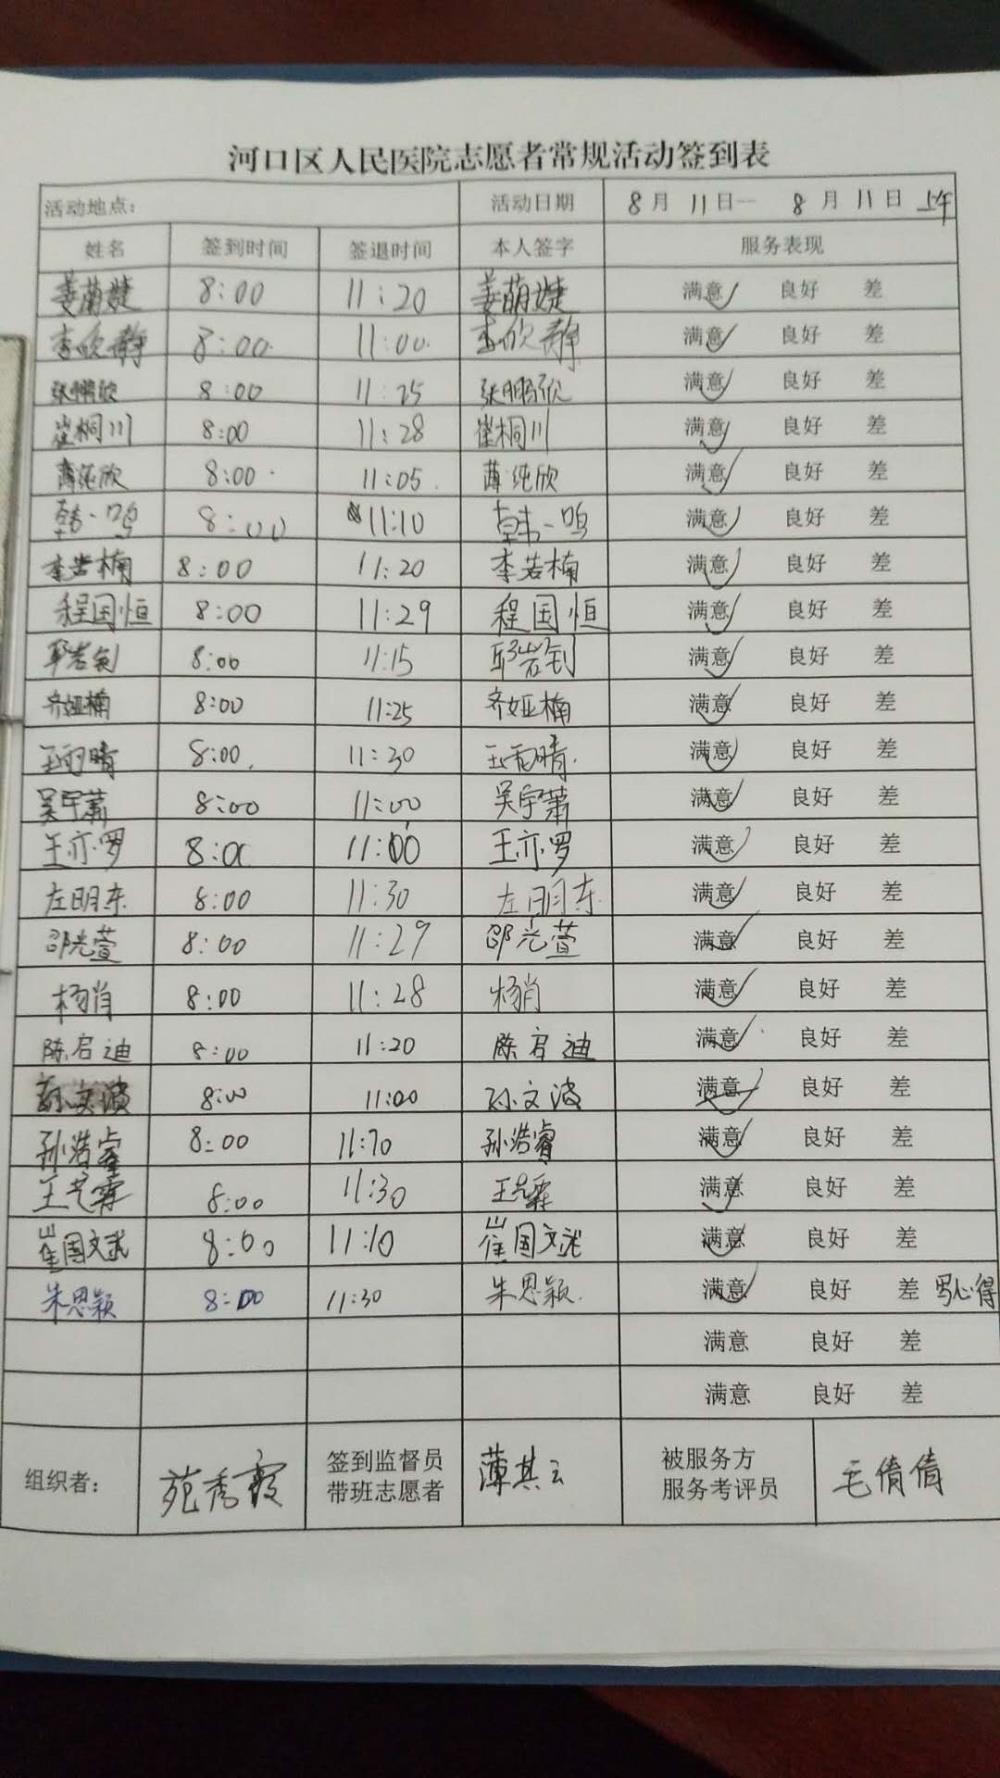 河口区人民医院志愿者常规活动签到表
活动地点： 活动日期 8月 11日— 8月 11日 上午
姓名 签到时间 签退时间 本人签字 服务表现
姜萌婕 8:00 11:20 姜萌婕 满意 良好 差
李欣静 8:00 11:00 李欣静 满意 良好 差
张鹏欣 8:00 11:25 张鹏欣 满意 良好 差
崔桐川 8:00 11:28 崔桐川 满意 良好 差
薄纯欣 8:00 11:05 薄纯欣 满意 良好 差
韩一鸣 8:00 11:10 韩一鸣 满意 良好 差
李若楠 8:00 11:20 李若楠 满意 良好 差
程国恒 8:00 11:29 程国恒 满意 良好 差
8:00 11:15 满意 良好 差
齐娅楠 8:00 11:25 齐娅楠 满意 良好 差
王雨晴 8:00 11:30 王雨晴 满意 良好 差
吴宇萧 8:00 11:00 吴宇萧 满意 良好 差
王亦罗 8:00 11:00 王亦罗 满意 良好 差
左明东 8:00 11:30 左明东 满意 良好 差
邵光萱 8:00 11:29 邵光萱 满意 良好 差
杨肖 8:00 11:28 杨肖 满意 良好 差
陈启迪 8:00 11:20 陈启迪 满意 良好 差
孙文波 8:00 11:00 孙文波 满意 良好 差
孙浩睿 8:00 11:70 孙浩睿 满意 良好 差
8:00 11:30 满意 良好 差
崔国文武 8:00 11:10 崔国文武 满意 良好 差
朱思颖 8:00 11:30 朱思颖 满意 良好 差 写心得
满意 良好 差
满意 良好 差
组织者： 苑秀霞 签到监督员 薄其云 被服务方 毛倩倩
带班志愿者 服务考评员